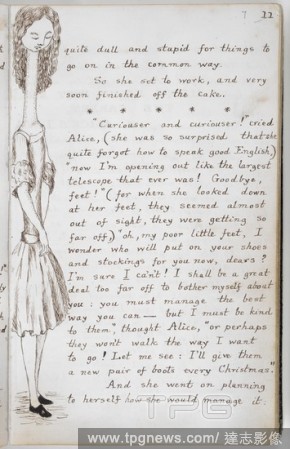 7 22
quite dull and stupid for things to
go on in the common way.
So she set to work, and very
soon finished off the cake.
* * * * * *
"Curiouser and curiouser!" cried
Alice, (she was so surprised that she
quite forgot how to speak good English,)
"now I'm opening out like the largest
telescope that ever was! Goodbye,
feet!" (for when she looked down
at her feet, they seemed almost
out of sight, they were getting so
far off,) "oh, my poor little feet, I
wonder who will put on your shoes
and stockings for you now, dears?
I'm sure I can't! I shall be a great
deal too far off to bother myself about
you: you must manage the best
way you can — but I must be kind
to them", thought Alice, "or perhaps
they won't walk the way I want
to go! Let me see: I'll give them
a new pair of boots every Christmas."
And she went on planning
to herself how she would manage it:
TPG
www.tpgnews.com / 達志影像